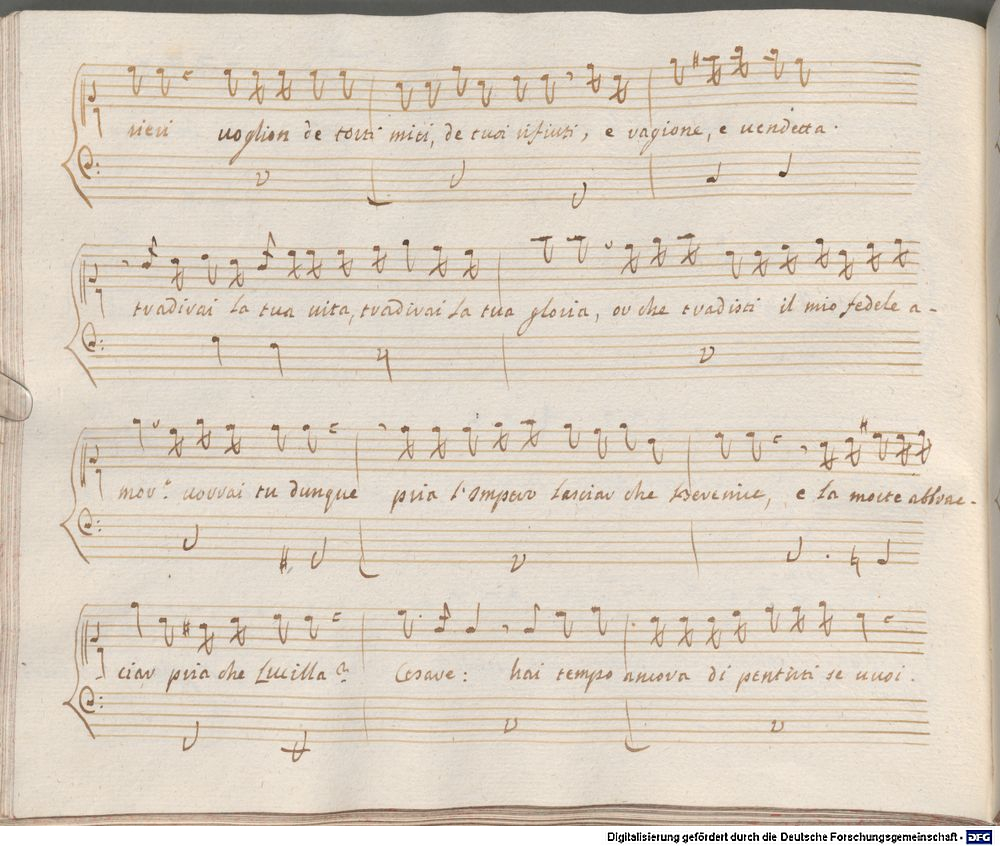 rieri voglion de torti miei, de tuoi rifiuti, e ragione, e vendetta.
tradirai la tua vita, tradirai la tua gloria, or che tradisti il mio fedele a-
mor.e vorrai tu dunque pria l'Impero lasciar che Berenice, e la morte abbrac-
ciar pria che Lucilla?
Cesare: hai tempo ancora di pentirti se vuoi.
Digitalisierung gefördert durch die Deutsche Forschungsgemeinschaft - DFG